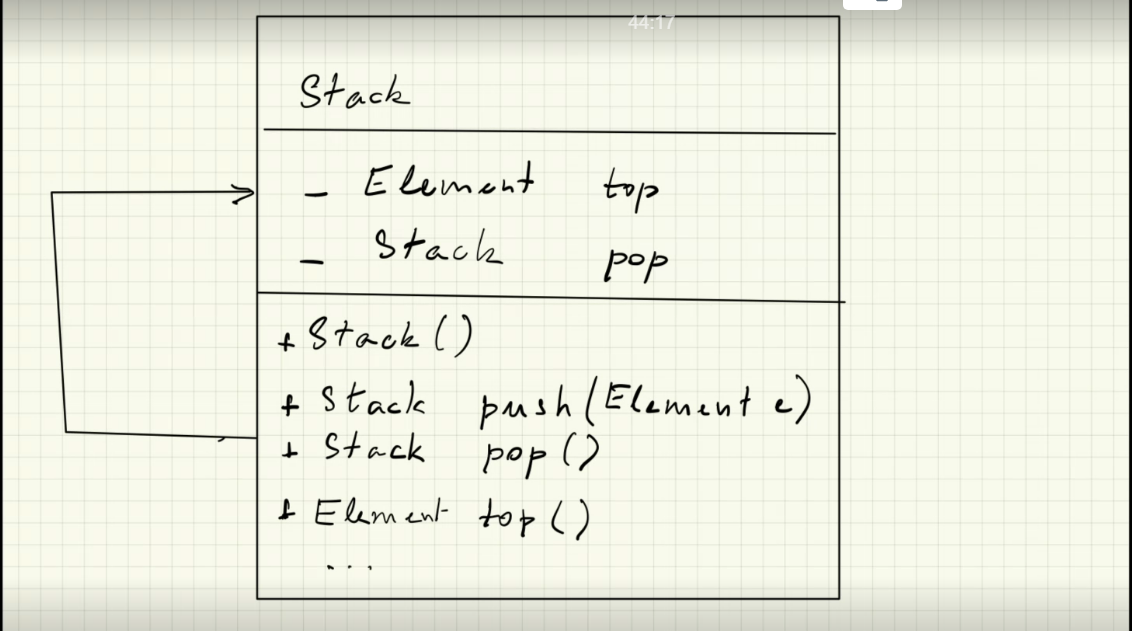 44:17
Stack
- Element top
- Stack pop
+ Stack()
+ Stack push(Element e)
+ Stack pop()
+ Element top()
...